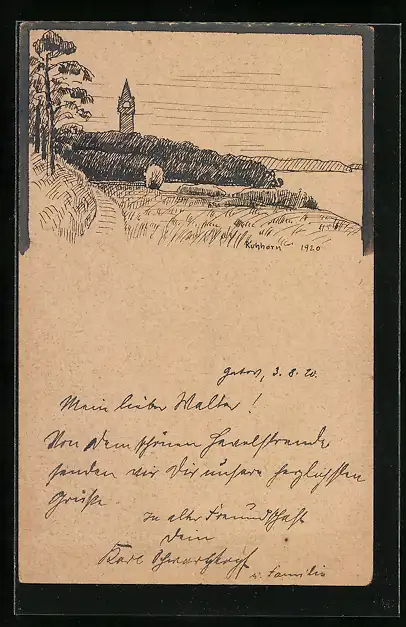 Kuhhorn 1920
Gatow, 3.8.20.
Mein lieber Walter!
Von dem schönen Havelstrande
senden wir Dir unsere herzlichsten
Grüße
In alter Freundschaft
Dein
Karl Schwarzkopf
u. Familie